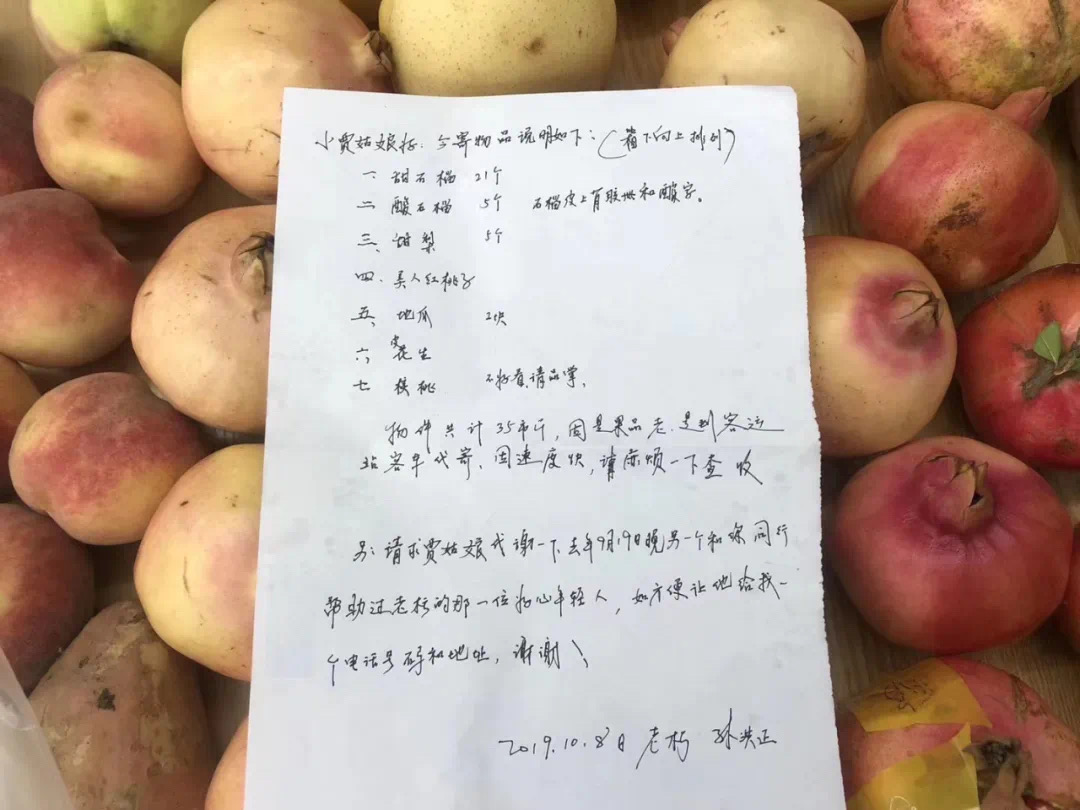 小贾姑娘好：今寄物品说明如下：（箱下向上排列）
一 甜石榴 21个
二 酸石榴 5个 石榴皮上有胶带和酸字。
三、甜梨 5个
四、美人红桃子
五、地瓜 2块
六、花生
七 核桃 不好看请品尝、
物件共计35市斤，因是果品老是到客运
站客车代寄、因速度快，请麻烦一下查收
另：请求贾姑娘代谢一下去年9月19日晚另一个和你同行
帮助过老朽的那一位热心年轻人，如方便让他给我一
个电话号码和地址，谢谢！
2019.10.8日 老朽 孙洪正